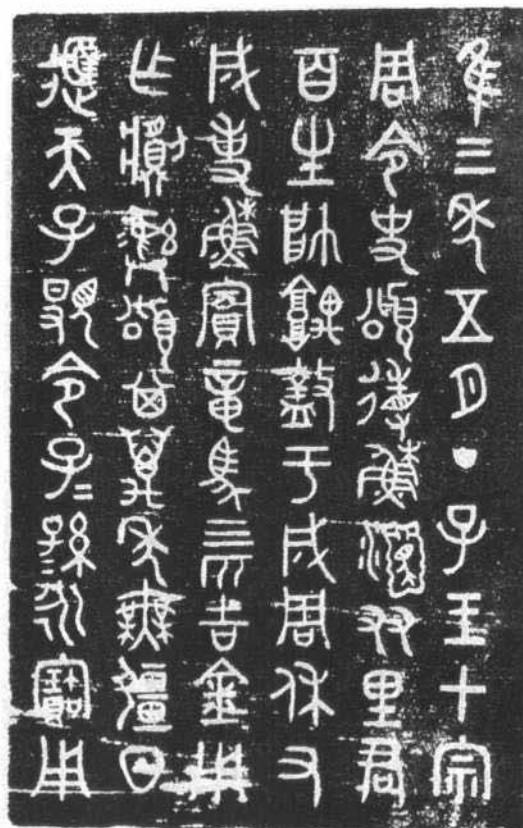 隹三年五月丁子王才宗
周令史頌省穌灋友里君
百生帥䣓盩于成周休又
成事穌賓章馬亖匹吉金用
乍𩰬彝頌其萬年無疆日
𨒙天子顯令子=孫=永寶用